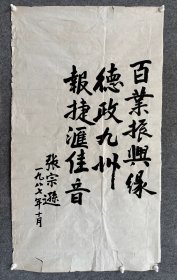 百業振興緣
德政九州
報捷滙佳音
張宗遜
一九八七年十月